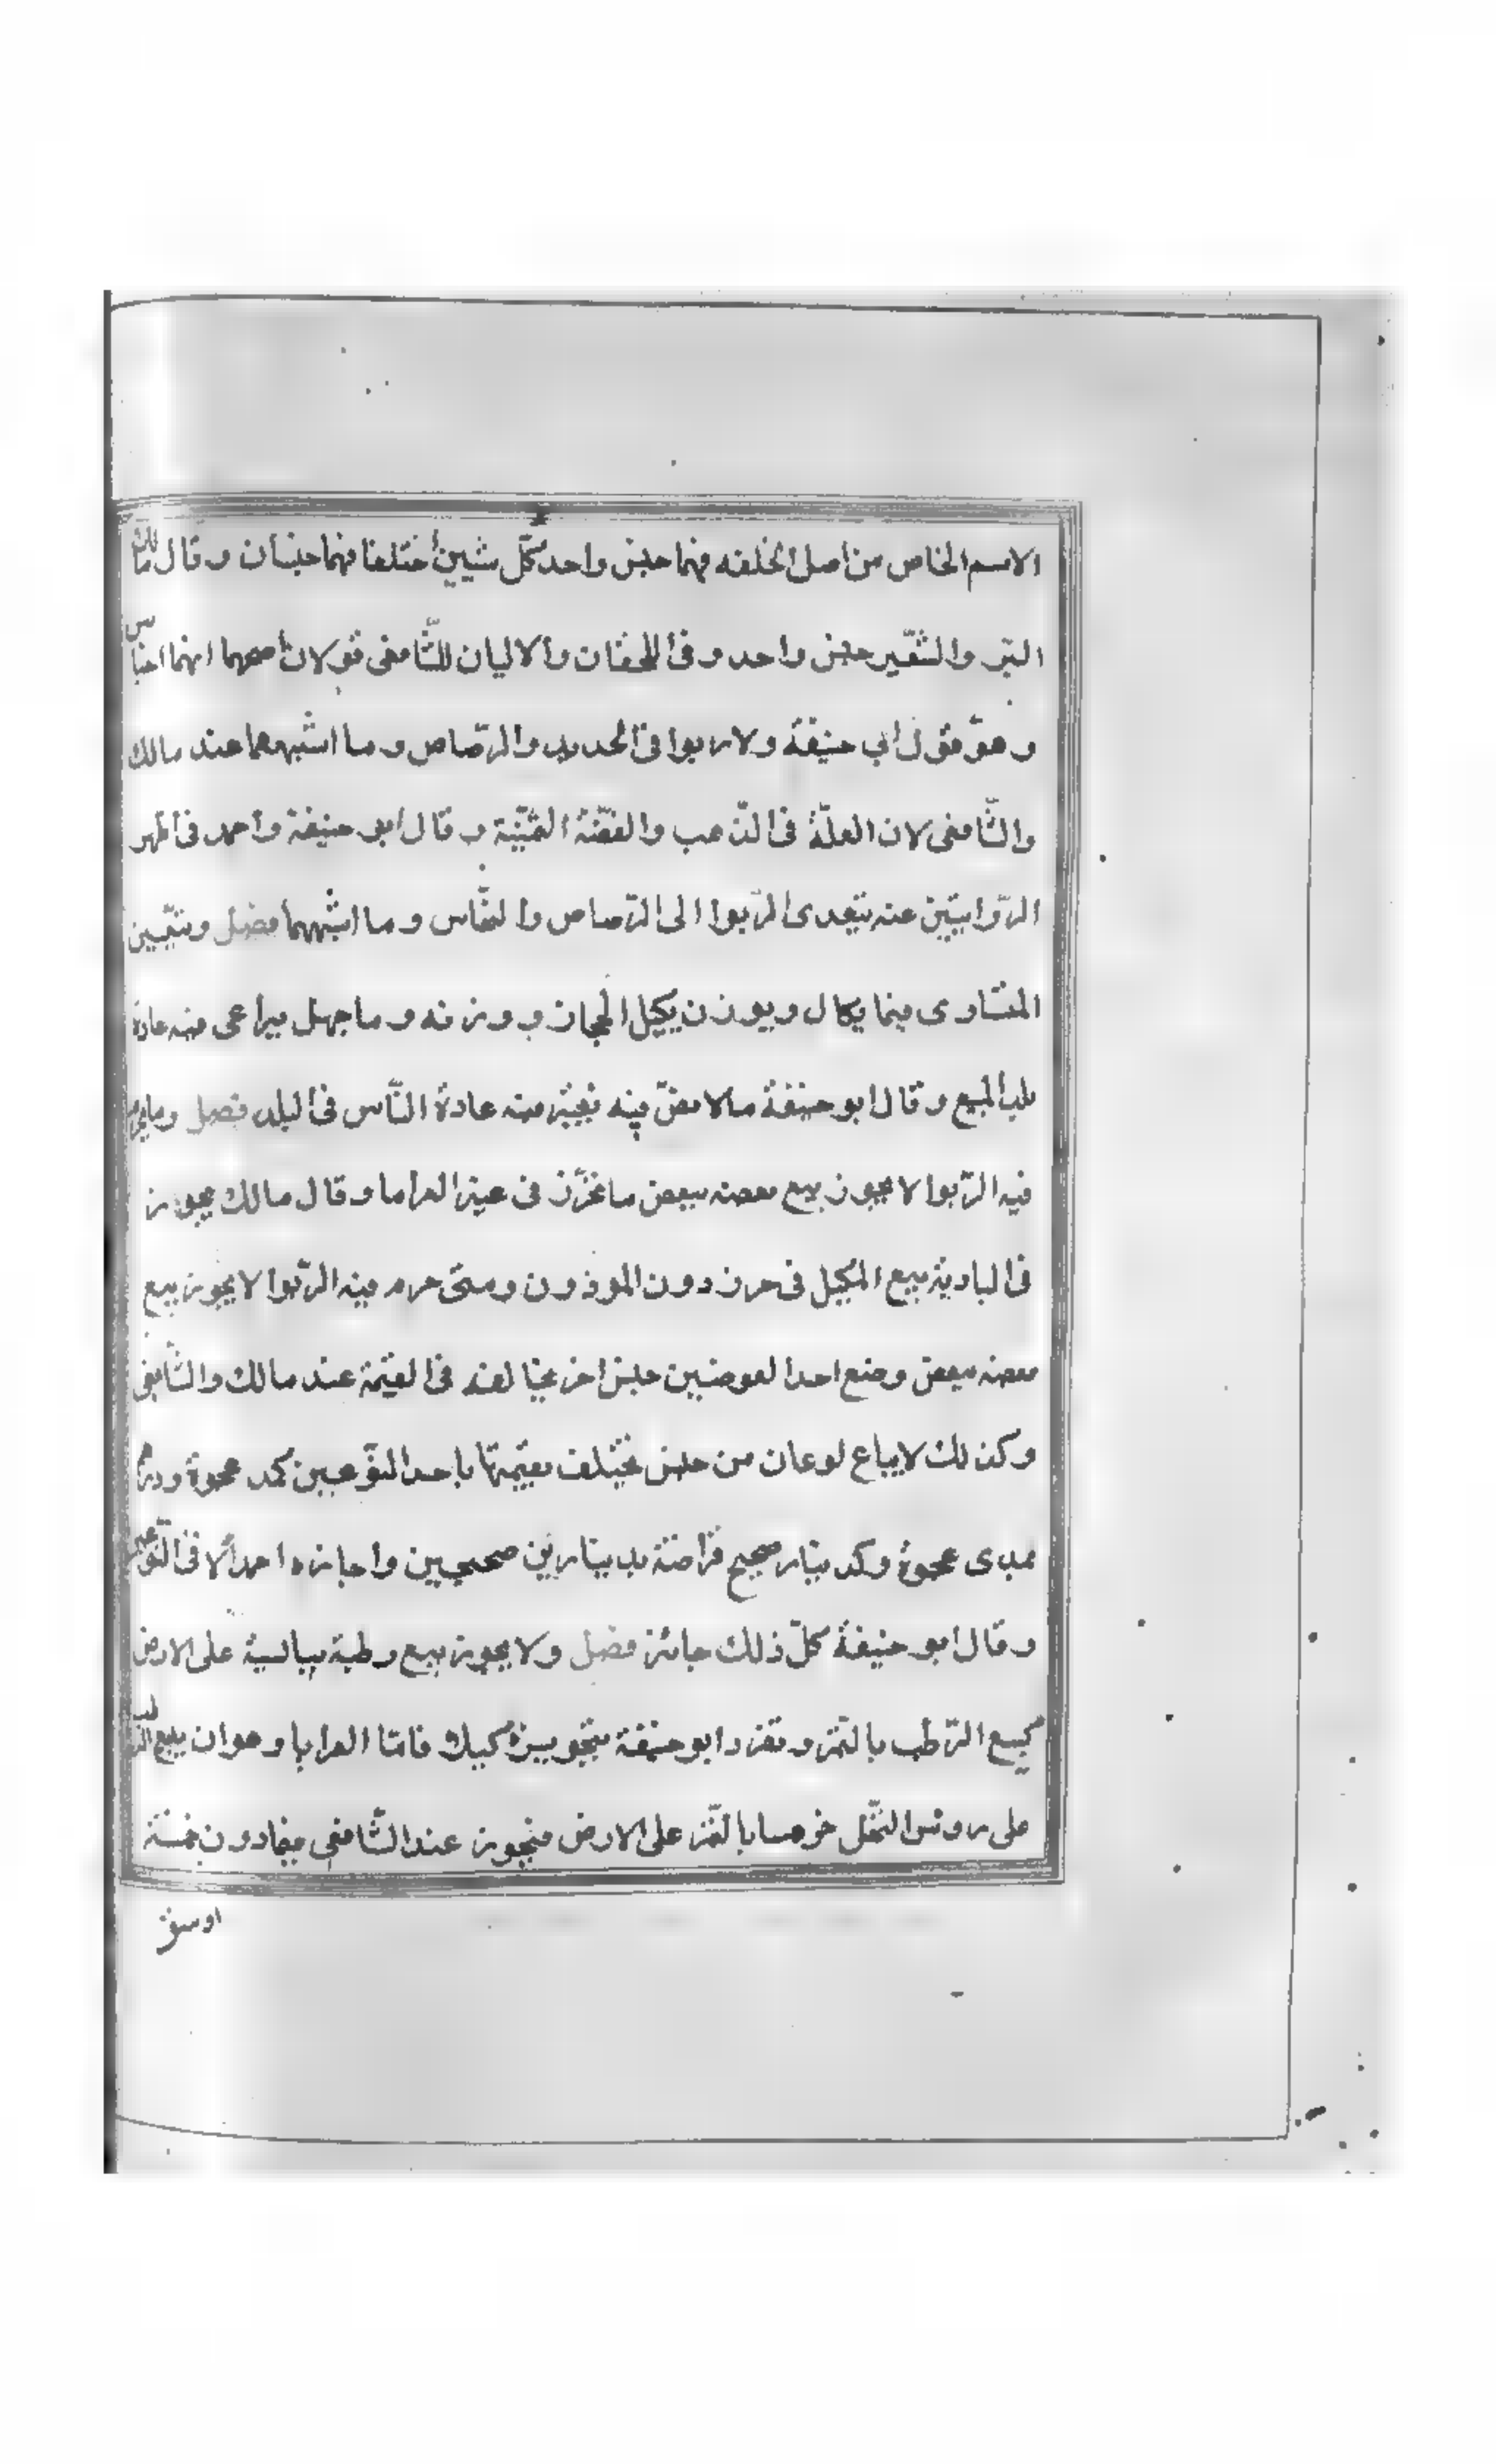 الاسم الخاص من اصل الخلقه فهما جنس واحد وكل شيئين اختلفا فهما جنسان وقال مالك
البر والشعير جنس واحد وفى اللحمان والالبان للشافعى قولان اصحهما انهما اجناس
وهو قول ابى حنيفة ولا ربوا فى الحديد والرصاص وما اشبههما عند مالك
والشافعى لان العلة فى الذهب والفضة الثمنية وقال ابو حنيفة واحمد فى اظهر
الروايتين عنه يتعدى الربوا الى الرصاص والنحاس وما اشبههما فصل ويتعين
التساوى فيما يكال ويوزن بكيل الحجاز ووزنه وما جهل يراعى فيه عادة
بلد البيع وقال ابو حنيفة مالا نص فيه يعتبر فيه عادة الناس فى البلد فصل وما يحرم
فيه الربوا لا يجوز بيع بعضه ببعض فى غير العرايا وقال مالك يجوز
فى البادية بيع المكيل فى حرز دون الموزون ومتى حرم فيه الربوا لا يجوز بيع
بعضه ببعض ومع احد العوضين جنس اخر يخالفه فى القيمة عند مالك والشافعى
وكذلك لا يباع نوعان من جنس مختلف بقيمتها باحد النوعين كمد عجوة ودرهم
بمدى عجوة وكدينار صحيح قراضة بدينارين صحيحين واجازه احمد الا فى النوعين
وقال ابو حنيفة كل ذلك جائز فصل ولا يجوز بيع رطبة بيابسة على الارض
كبيع الرطب بالتمر وتفرد ابو حنيفة بتجويزه كيلا فاما العرايا وهو ان يبيع الرطب
على روس النخل خرصا بالتمر على الارض فيجوز عند الشافعى فيما دون خمسة
اوسق